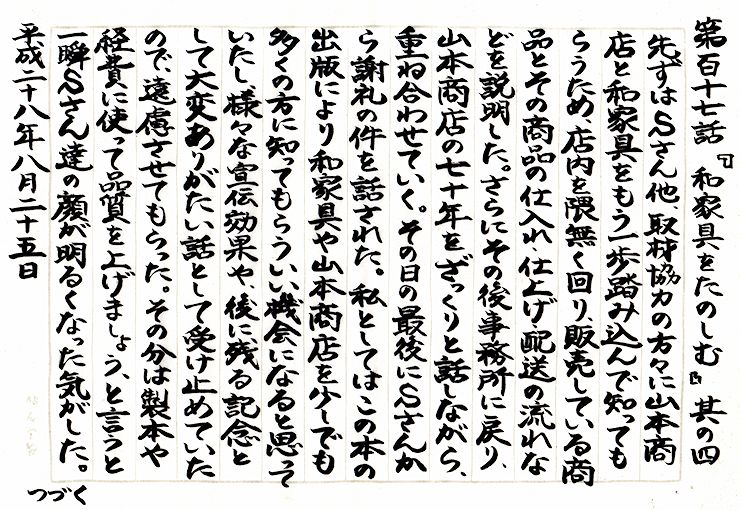 第百十七話『和家具をたのしむ』其の四
先ずはSさん他、取材協力の方々に山本商
店と和家具をもう一歩踏み込んで知っても
らうため、店内を隈無く回り、販売している商
品とその商品の仕入れ、仕上げ、配送の流れな
どを説明した。さらにその後事務所に戻り、
山本商店の七十年をざっくりと話しながら、
重ね合わせていく。その日の最後にSさんか
ら謝礼の件を話された。私としてはこの本の
出版により和家具や山本商店を少しでも
多くの方に知ってもらういい機会になると思って
いたし、様々な宣伝効果や、後に残る記念と
して大変ありがたい話として受け止めていた
ので、遠慮させてもらった。その分は製本や
経費に使って品質を上げましょう、と言うと
一瞬Sさん達の顔が明るくなった気がした。
平成二十八年八月二十五日
つづく